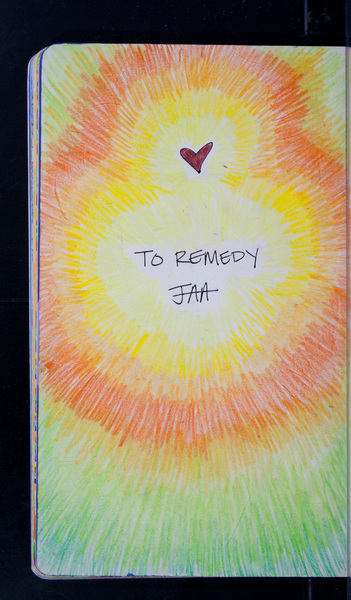 TO REMEDY
JAA